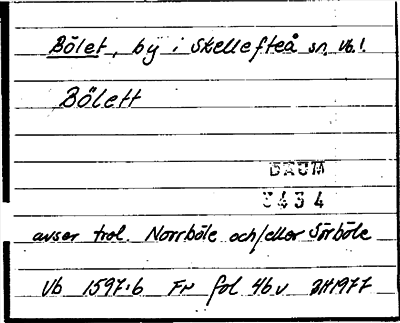 Bölet, by i Skellefteå sn, Vb.!
Bölett
DAUM
3434
avser trol. Norrböle och/eller Sörböle
Vb 1597:6 Fr fol 46v 2H1977